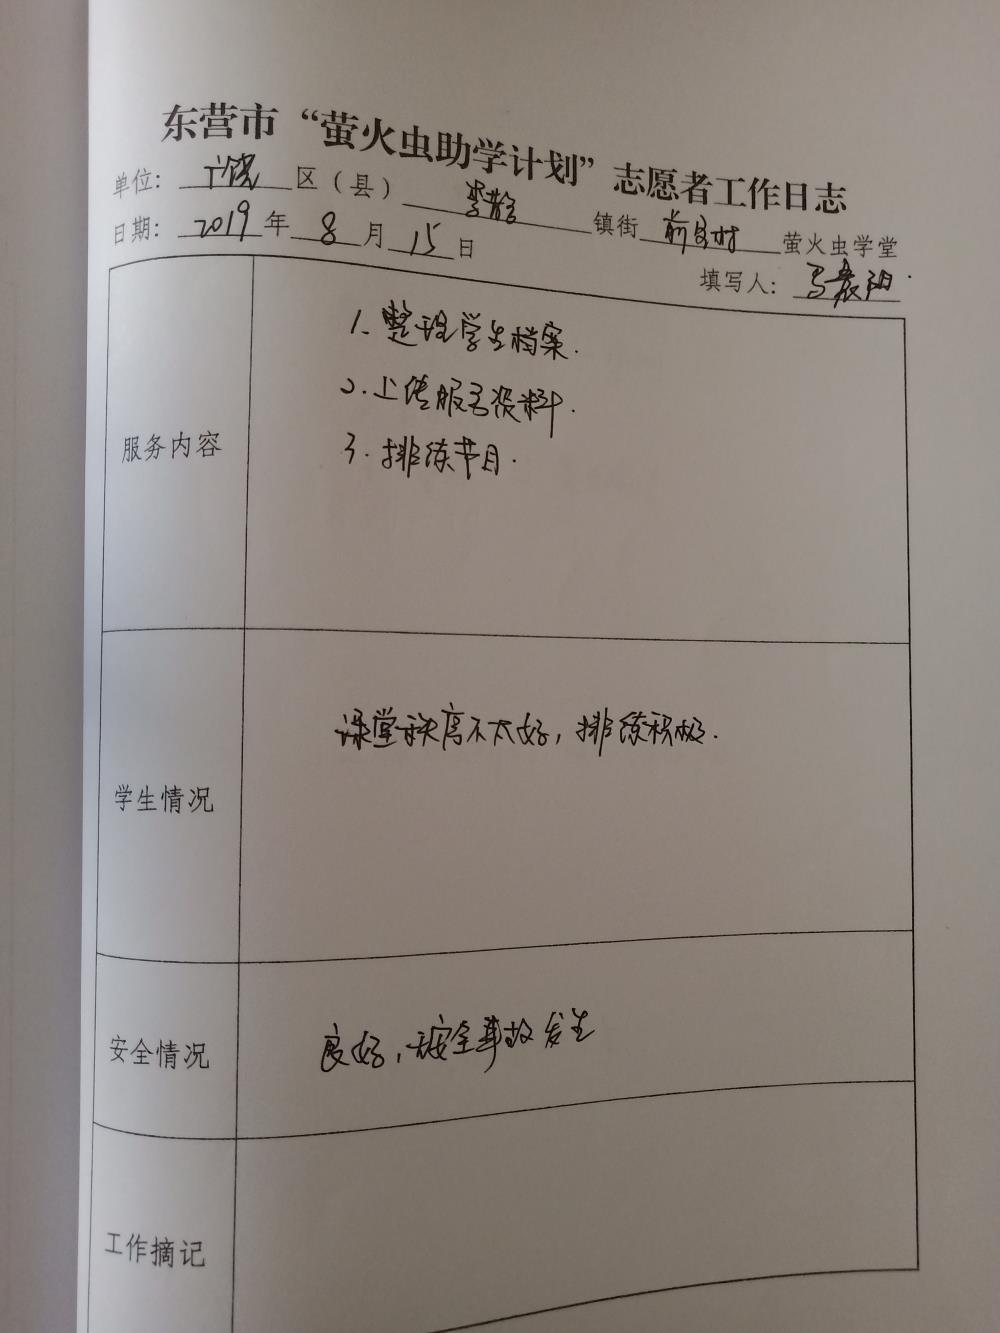 东营市“萤火虫助学计划”志愿者工作日志
单位：广饶区（县）李鹊镇街前吕村萤火虫学堂
日期：2019年8月15日
填写人：马晨阳
服务内容
1.整理学生档案.
2.上传服务资料.
3.排练节目.
学生情况
课堂秩序不太好，排练积极.
安全情况
良好，无安全事故发生
工作摘记